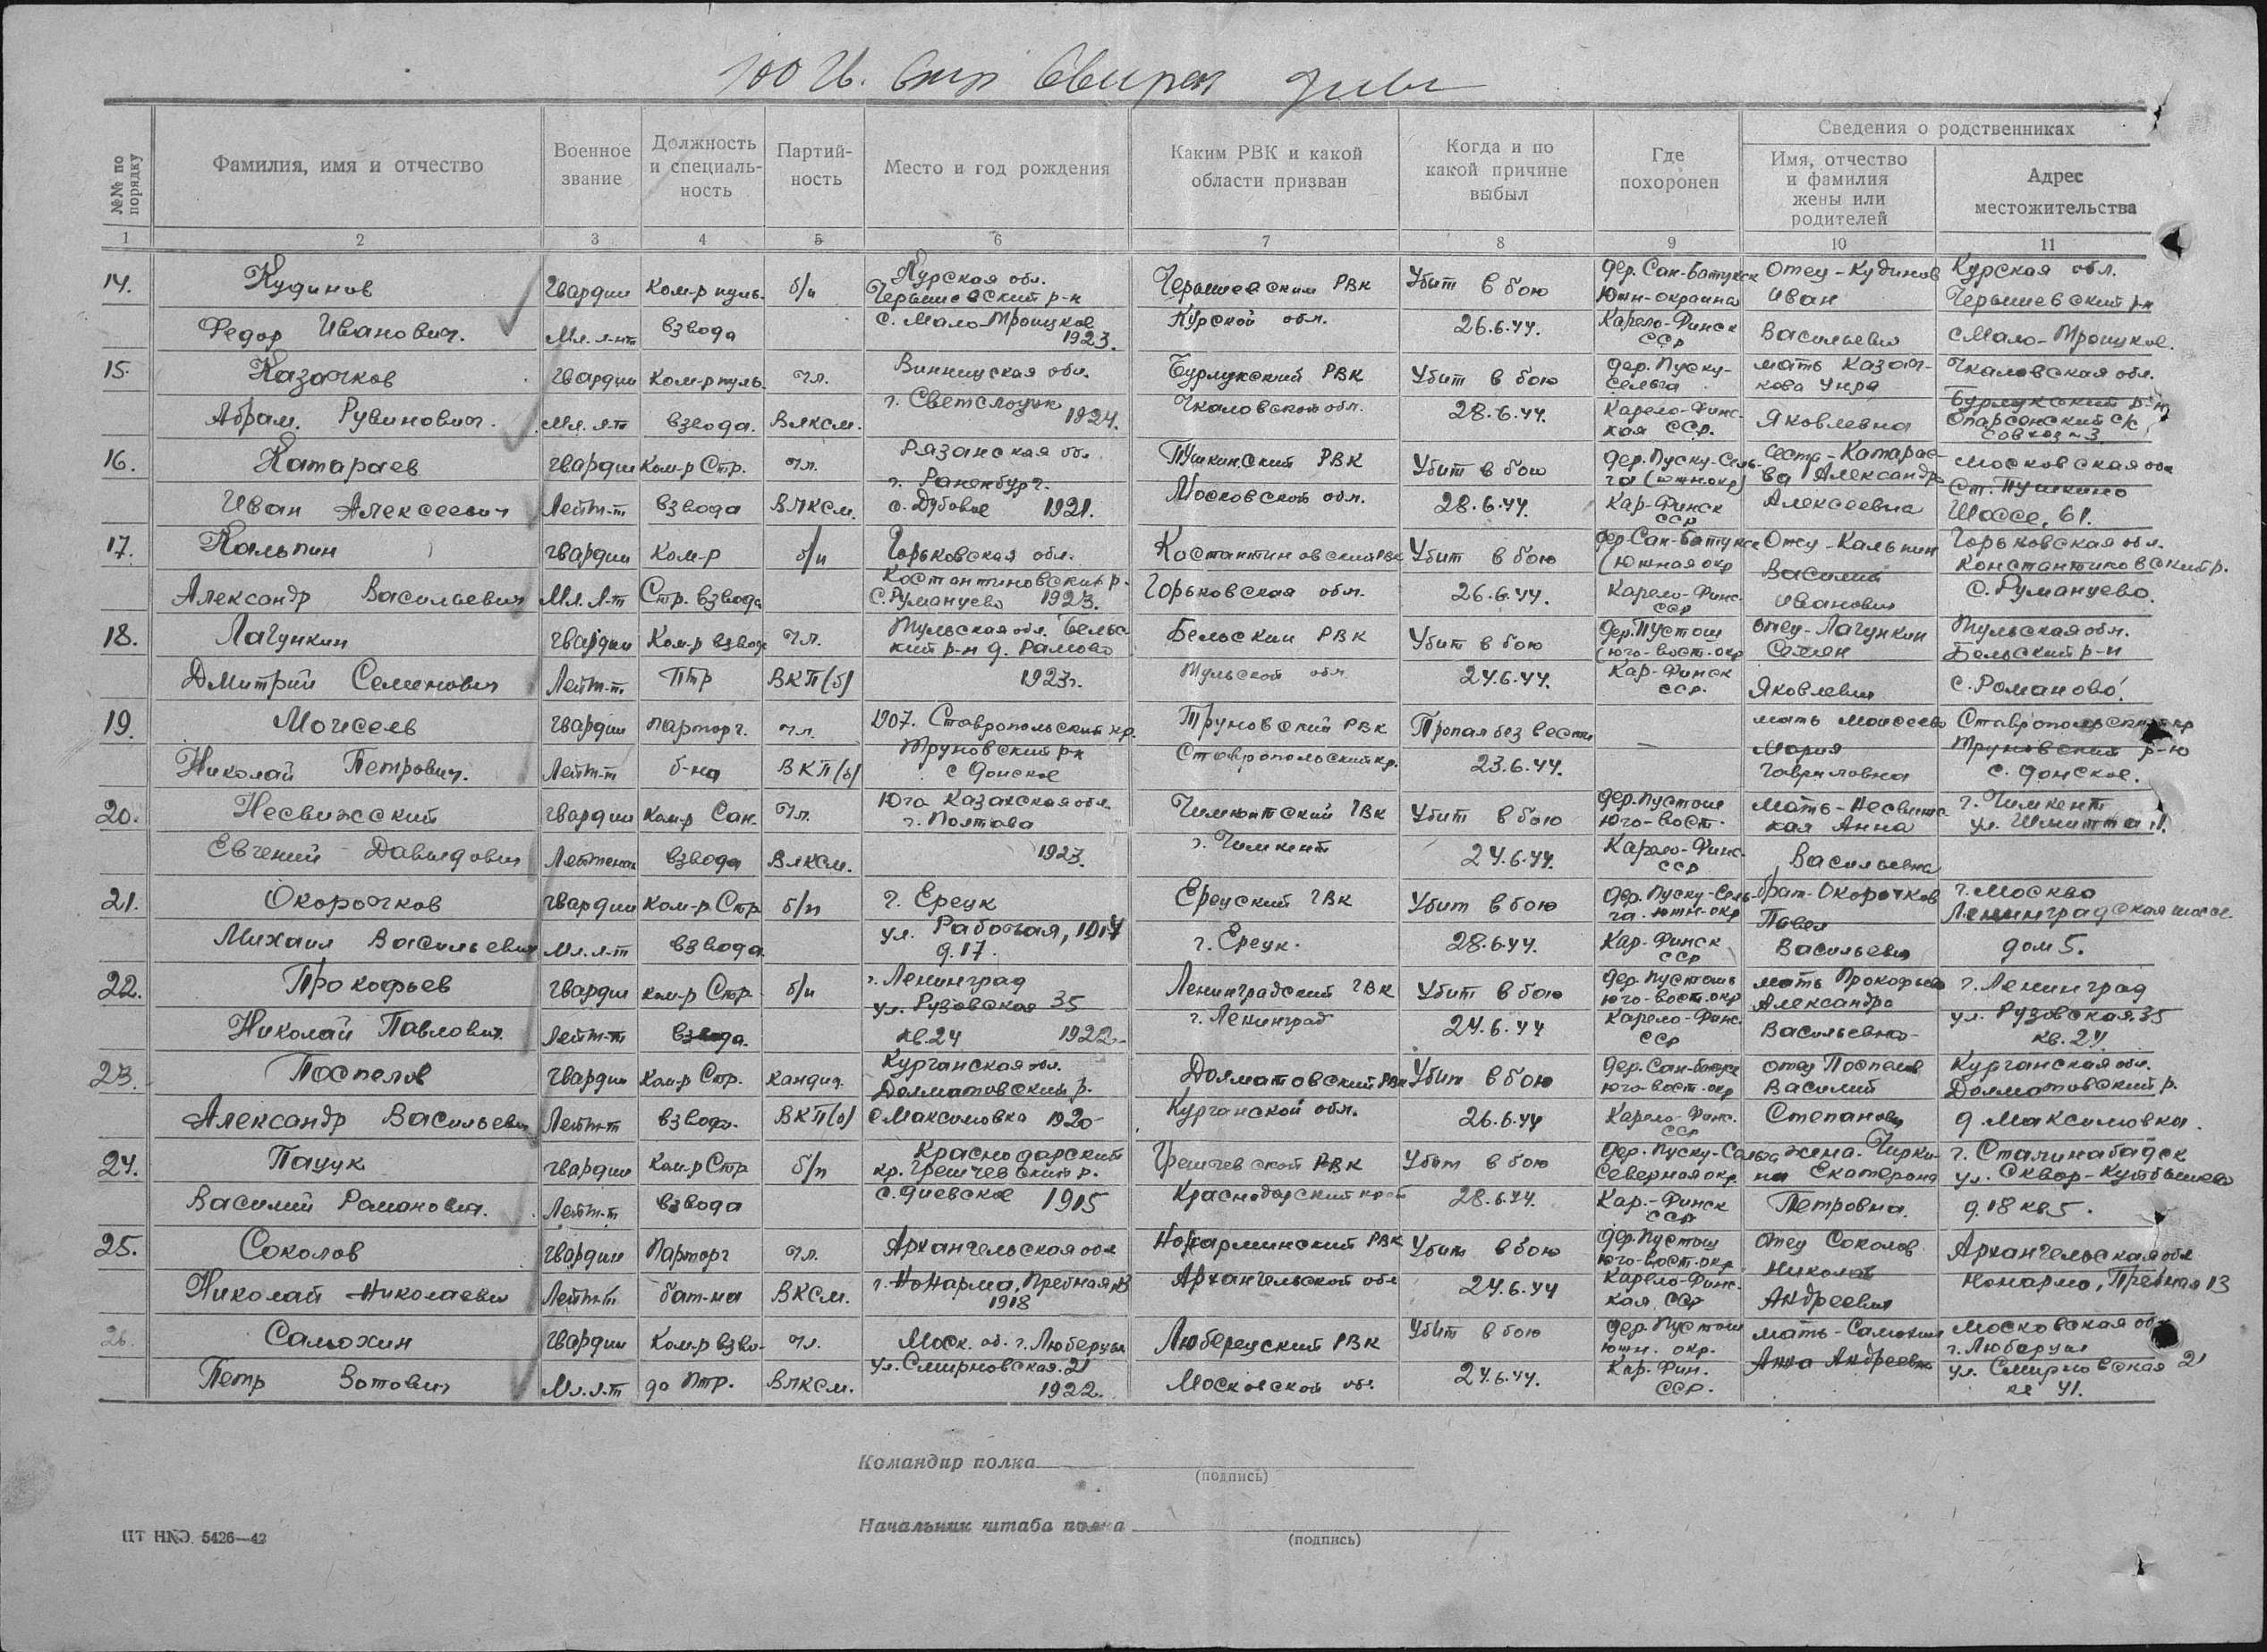 100 Гв. стр Свирск див
№№ по порядку
Фамилия, имя и отчество
Военное звание
Должность и специаль-ность
Партий-ность
Место и год рождения
Каким РВК и какой области призван
Когда и по какой причине выбыл
Где похоронен
Сведения о родственниках
Имя, отчество и фамилия жены или родителей
Адрес местожительства
1 2 3 4 5 6 7 8 9 10 11
14. Кудинов Федор Иванович. гвардии Мл. л-нт Ком-р пуль. взвода б/п Курская обл. Чернышевский р-н с. Мало-Троицкое 1923. Чернышевским РВК Курской обл. Убит в бою 26.6.44. дер. Сан-Батукск Южн-окраина Карело-Финск ССР Отец-Кудинов Иван Васильевич Курская обл. Чернышевский р-н с Мало-Троицкое.
15. Казачков Абрам. Рувинович. гвардии Мл. л-т Ком-р пуль. взвода. чл. ВЛКСМ. Винницская обл. 1924. Бурлукский РВК Чкаловской обл. Убит в бою 28.6.44. дер. Пуску-Сельга Карело-Финс-кая ССР. мать Казач-кова Яковлевна Чкаловская обл. Бурлукский р-н с/с Совхоз-3
16. Катараев Иван Алексеевич гвардии Лейт-т Ком-р Стр. взвода чл. ВЛКСМ. Рязанская об. г. Раненбург. с. Дубовое 1921. Пушкинский РВК Московской обл. Убит в бою 28.6.44. дер. Пуску-Сель-га (южн.окр) Кар-Финск ССР сестр-Катарае-ва Александра Алексеевна Московская обл Ст. Пушкино Шоссе, 61.
17. Кальпин Александр Васильевич гвардии Мл. л-т Ком-р Стр. взвода б/п Горьковская обл. Костантиновский р. С. Румянцево 1923. Костантиновский РВК Горьковская обл. Убит в бою 26.6.44. дер. Сан-Батукск (Южная окр Карело-Финс. ССР Отец-Кальпин Василий Иванович Горьковская обл. Константиновский р. С. Румянцево.
18. Лагункин Дмитрий Семенович гвардии Лейт-т. Ком-р взвода ПТР чл. ВКП(б) Тульская обл. Бельс кий р-н д. Рамово 1923г. Бельский РВК Тульской обл Убит в бою 24.6.44. дер. Пустош (юго-вост.окр Кар-Финск ССР. отец-Лагункин Семен Яковлевич Тульская обл. Бельский р-н С. Романово.
19. Моисеев Николай Петрович. гвардии Лейт-т парторг. б-на чл. ВКП(б) 1907. Ставропольский кр. Труновский р-н с Донское Труновский РВК Ставропольский кр. Пропал без вести 23.6.44. — мать Моисеева Мария Гавриловна Ставропольский кр Труновский р-н с. Донское.
20. Несвижский Евгений Давыдович гвардии Лейтенант Ком-р Сан. взвода чл. ВЛКСМ. Юго Казахская обл. г. Полтава 1923. Чимкентский ГВК г. Чимкент Убит в бою 24.6.44. дер. Пустош юго-вост. Карело-Финс. ССР Мать-Несвижс кая Анна Васильевна г. Чимкент ул. Шмитта
21. Окорочков Михаил Васильевич гвардии Мл. л-т Ком-р Стр взвода. б/п г. Ереук ул. Рабочая, 1917 д. 17. Ереуский ГВК г. Ереук. Убит в бою 28.6.44. дер. Пуску-Сель-га. южн-окр Кар-Финск ССР брат-Окорочков Павел Васильевич г. Москва Ленинградская шоссе. дом 5.
22. Прокофьев Николай Павлович. гвардии Лейт-т ком-р Стр. взвода. б/п г. Ленинград ул. Рузовская 35 кв. 24 1922 Ленинградский ГВК г. Ленинград Убит в бою 24.6.44 дер. Пустошь юго-вост. окр Карело-Финс. ССР мать Прокофьева Александра Васильевна г. Ленинград ул. Рузовская.35 кв. 24
23. Поспелов Александр Васильевич гвардии Лейт-т Ком-р Стр. взвода. кандид. ВКП(б) Курганская обл. Долматовский р. с Максимовка 1920 Долматовский РВК Курганской обл. Убит в бою 26.6.44 юго-вост. окр Карело-Финс. ССР отец Поспелов Василий Степанович Курганская обл. Долматовский р. д. Максимовка.
24. Пацук Василий Романович. гвардии Лейт-т Ком-р Стр взвода б/п Краснодарский кр. Гречевский р. 1915 Гречевской РВК Краснодарский край Убит в бою 28.6.44. дер. Пуску-Сельга Северная окр. Кар.-Финск ССР жена. Чирки-на Екатерина Петровна. г. Сталинабадск ул. Сквор-Куйбышева д. 18 кв 5.
25. Соколов Николай Николаевич гвардии Лейт-т Парторг бат-на чл. ВКСМ. Архангельская обл г. Нонарма, Пребная 13 1918 РВК Архангельской обл Убит в бою 24.6.44 дер. Пустош юго-вост.окр Карело-Финс. кая ССР Отец Соколов Николай Андреевич Архангельская обл Нонарма, Пребная 13
26. Самохин Петр Зотович гвардии Мл. л-т Ком-р взво-да Птр. чл. ВЛКСМ. Моск. об. г. Люберцы ул. Смирновская. 21 1922. Люберецкий РВК Московской об. Убит в бою 24.6.44. дер. Пустош южн. окр. Кар. Фин. ССР. мать-Самохина Анна Андреевна Московская обл г. Люберцы ул. Смирновская 21 кв 41.
Командир полка
(подпись)
Начальник штаба полка
(подпись)
ЦТ НКО 5426—42